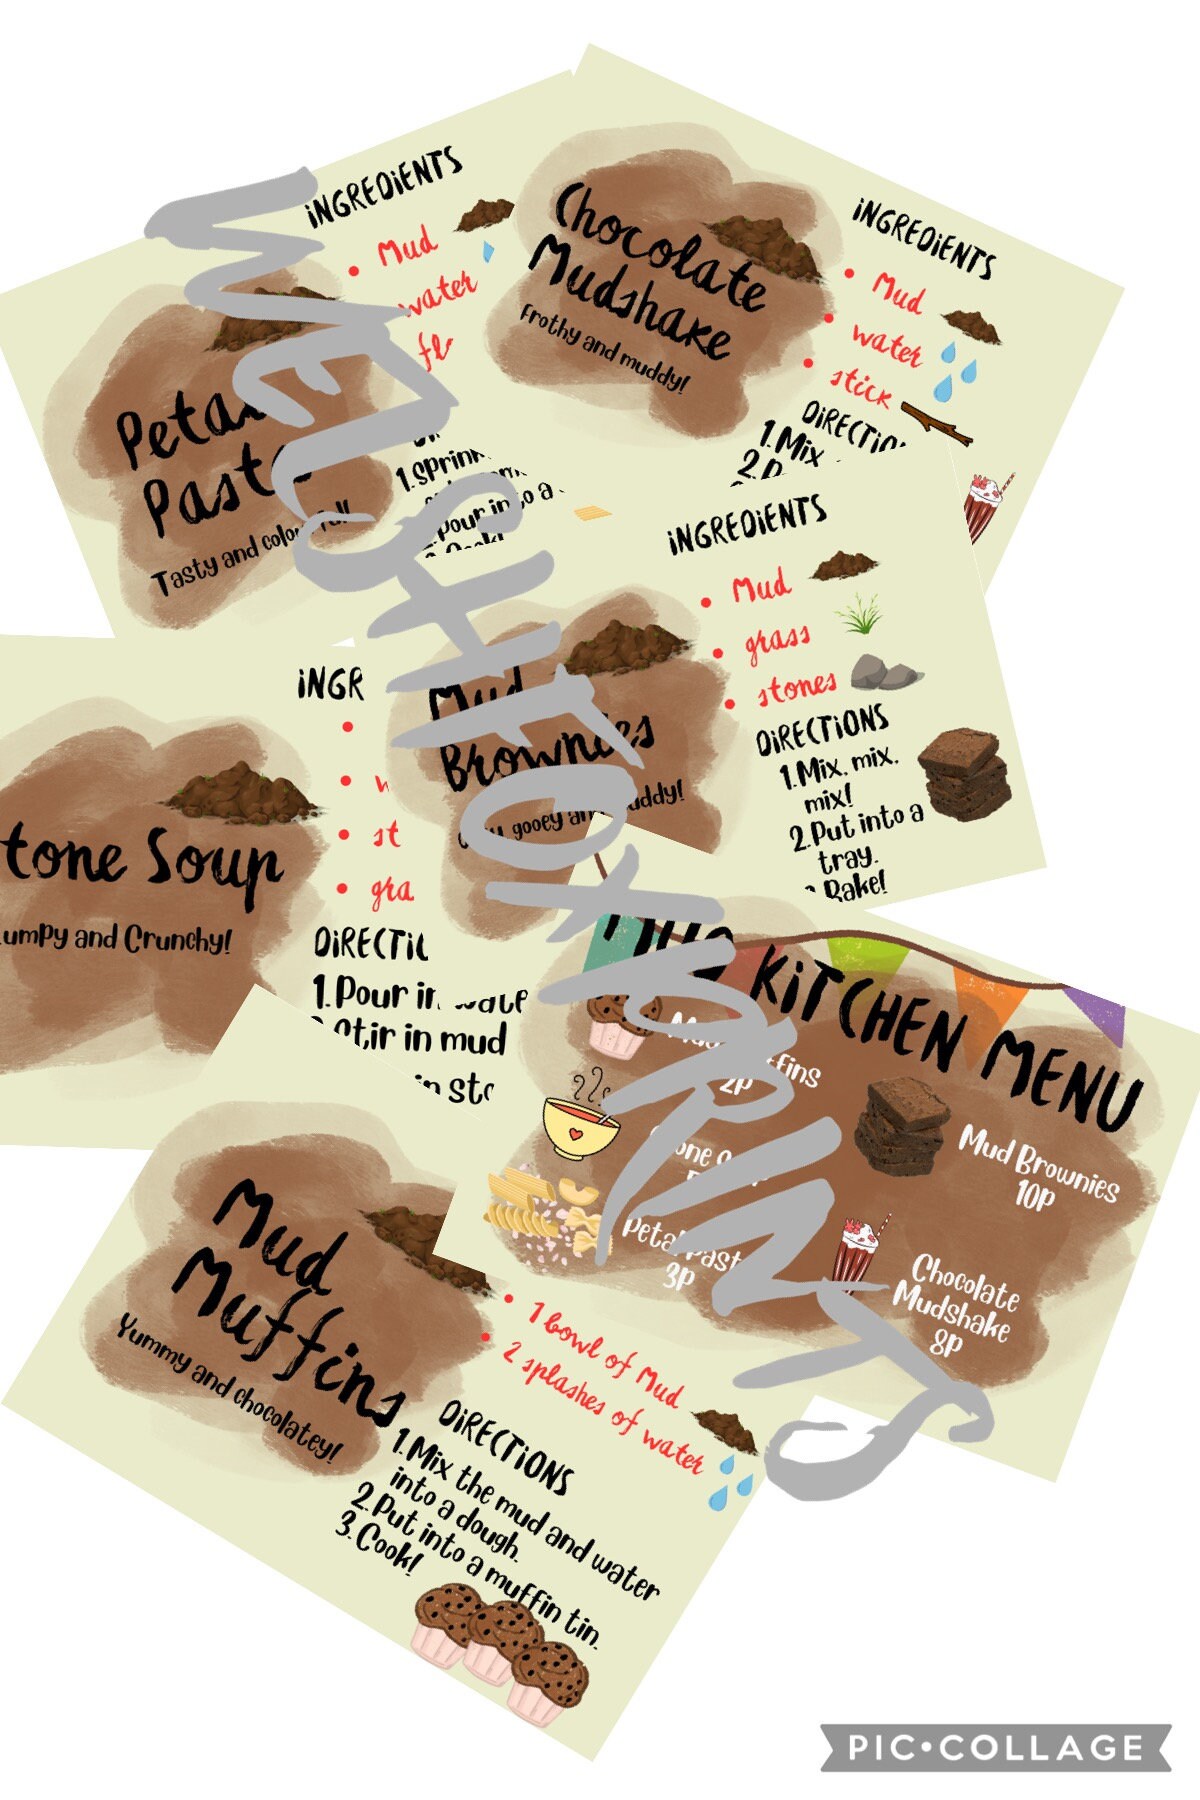 INGREDIENTS
Mud
water
Petal
Pasta
Tasty and colourful!
1. Sprin
Pour into a
Cook!
Chocolate
Mudshake
Frothy and muddy!
INGREDIENTS
Mud
water
stick
DIRECTION
1. Mix
2. P
Mud
Brownies
gooey and muddy!
INGREDIENTS
Mud
grass
stones
DIRECTIONS
1. Mix. mix.
mix!
2. Put into a
tray.
Bake!
tone Soup
umpy and Crunchy!
INGR
w
st
gra
DIRECTIO
1. Pour in wate
Stir in mud
in sto
MUD KITCHEN MENU
Mud Muffins
2p
Stone Soup
Petal Pasta
3p
Mud Brownies
10p
Chocolate
Mudshake
8p
Mud
Muffins
Yummy and chocolatey!
1 bowl of Mud
2 splashes of water
DIRECTIONS
1. Mix the mud and water
into a dough.
2. Put into a muffin tin.
3. Cook!
WELSHFOXPRINTS
PIC•COLLAGE